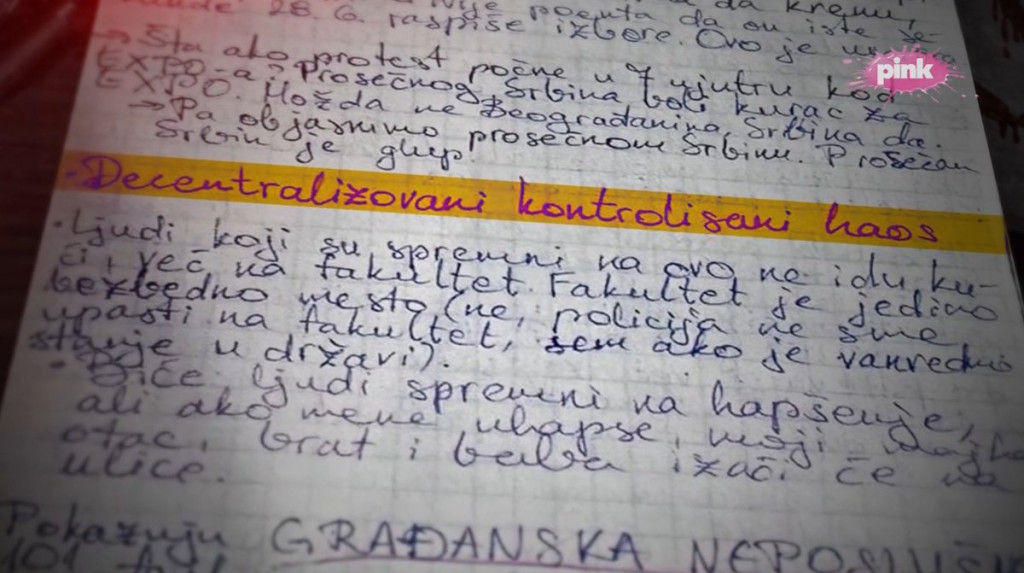 da krenu,
28. 6. raspiše izbore. Ovo je
pink
→ Šta ako protest počne u 7 ujutru kod
EXPO-a i prosečnog Srbina boli kurac za
EXPO. Možda ne Beograđanina, Srbina da.
→ Pa objasnimo prosečnom Srbinu. Prosečan
Srbin je glup.
· Decentralizovani kontrolisani haos
· Ljudi koji su spremni na ovo ne idu ku-
ći, već na fakultet. Fakultet je jedino
bezbedno mesto (ne, policija ne sme
upasti na fakultet, sem ako je vanredno
stanje u državi).
· Biće ljudi spremni na hapšenje,
ali ako mene uhapse, moji majka
otac, brat i baba izaći će na
ulice.
Pokazuju GRAĐANSKA
101